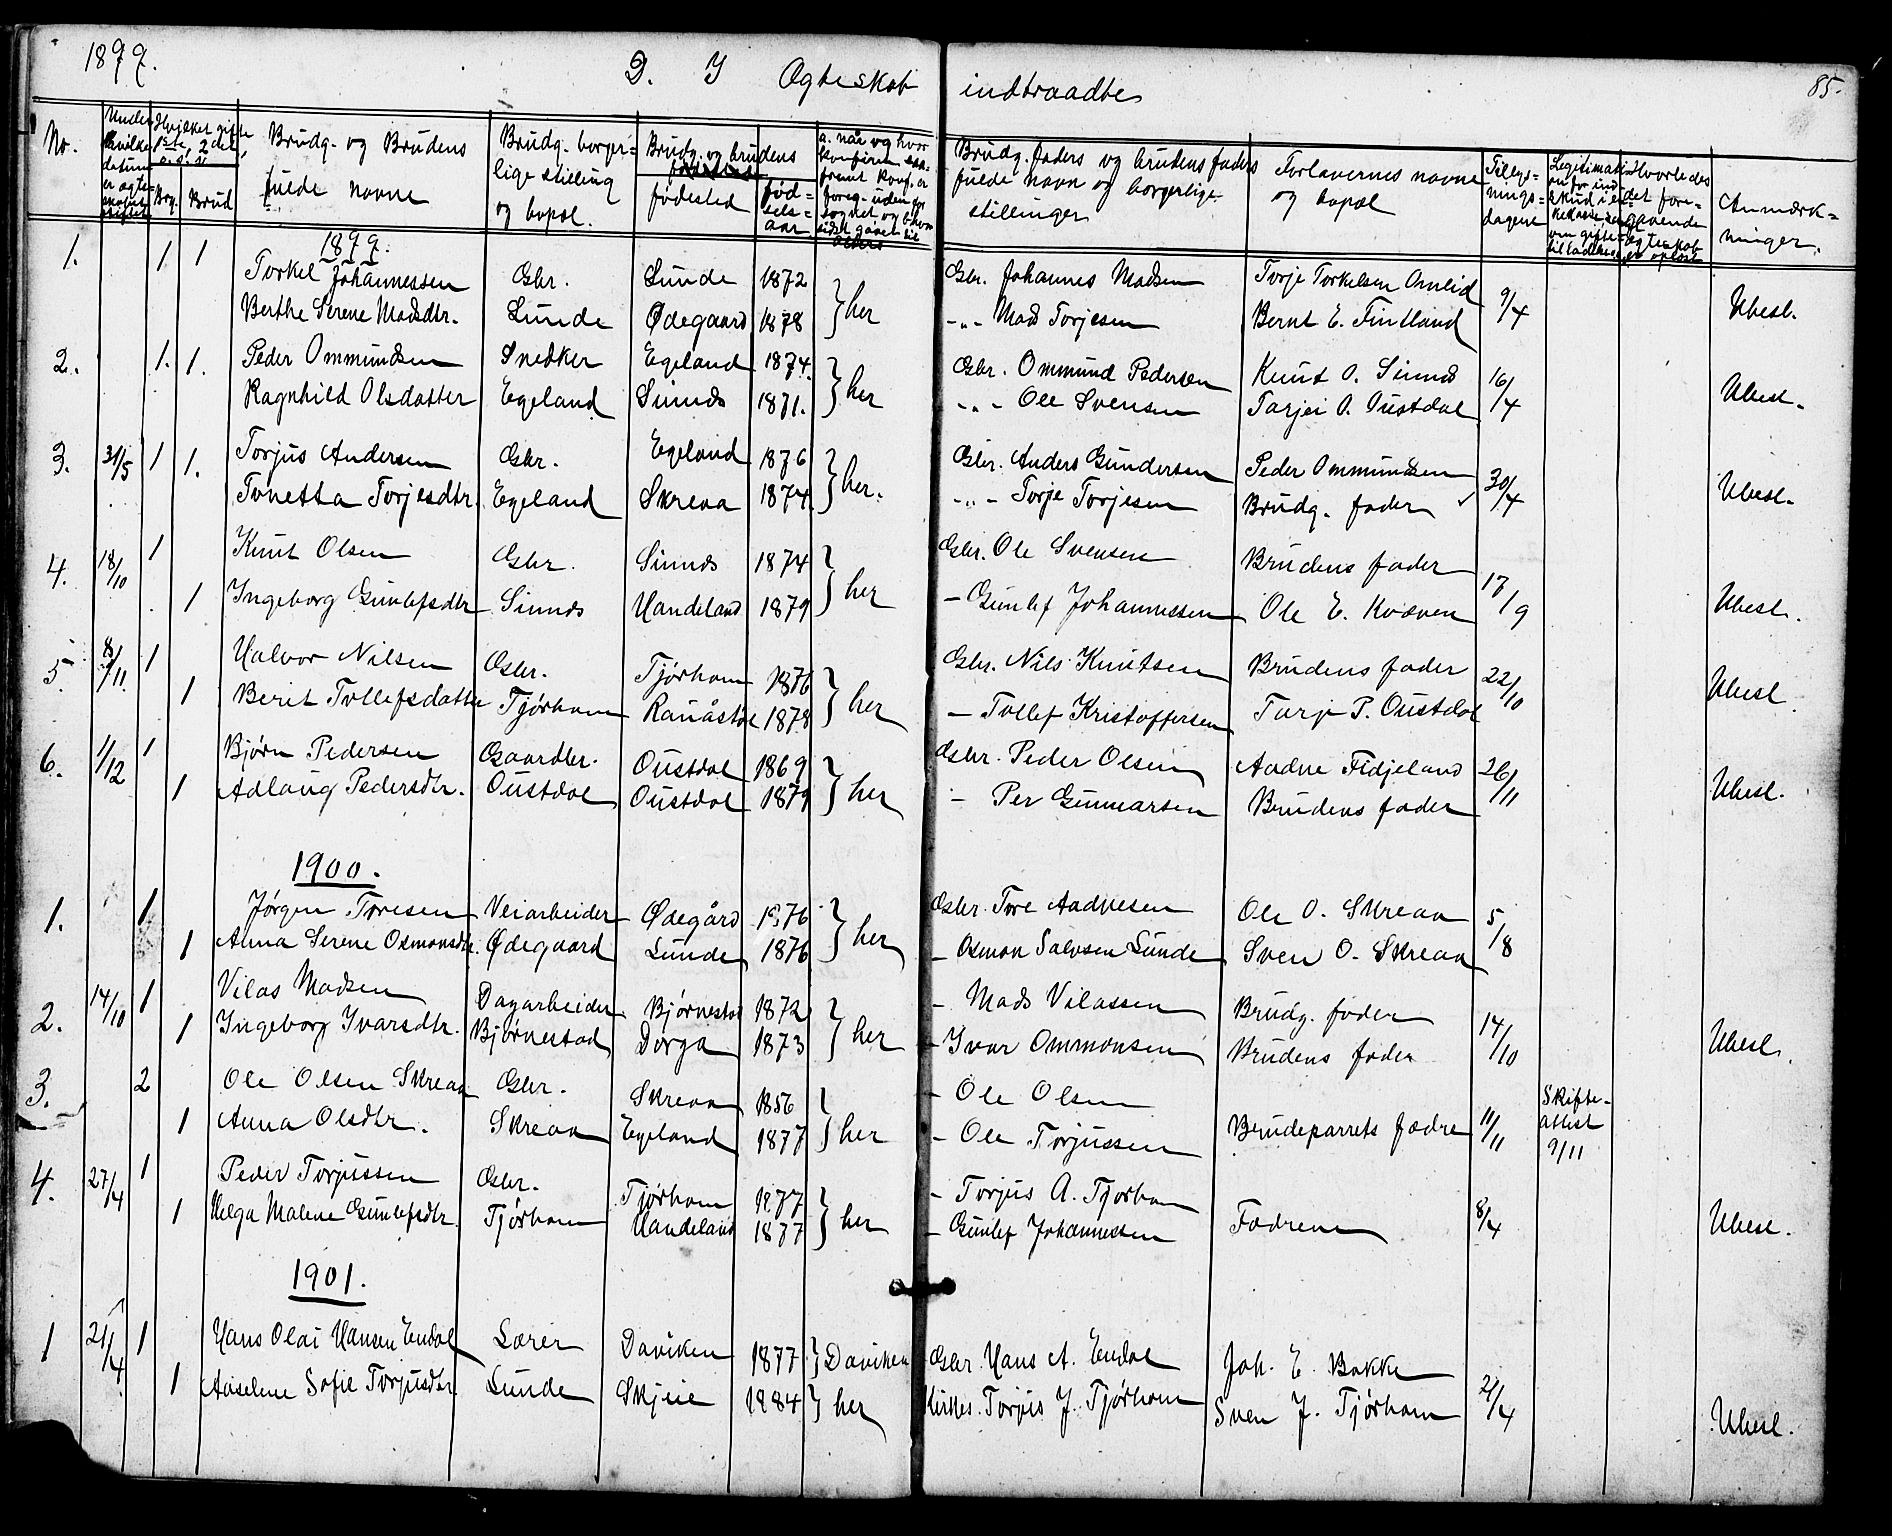 1899. D. I Ægteskab indtraadte 85.
No. Under hvilke datum er ægteskabet stiftet Hvilket gifte 1ste, 2det, o.s.v. Brg. Brud Brudg. og Brudens fulde navne Brudg. borgerlige stilling og bopæl. Brudg. og brudens fødested fødselsaar a. når og hvor Brudg. faders og brudens faders fulde navn og borgerlige stillinger Forlovernes navne og bopæl Tillysningsdagene Anmærkninger.
1899.
1. 1 1 Torkel Johannessen Gbr. Lunde 1872 } her Gbr. Johannes Madsen Torje Torkelsen Omlid 9/4 Ubesl.
Berthe Serene Madsdtr. Lunde Ødegaard 1878 -"- Mads Torjesen Bernt E. Fintland
2. 1. 1. Peder Ommundsen Snedker Egeland 1874. } her Gbr. Ommund Pedersen Knut O. Sinnes 16/4 Ubesl.
Ragnhild Olsdatter Egeland Sinnes 1871. -"- Ole Svensen Tarjei P. Oustdal
3. 31/5 1 1. Torjus Andersen Gbr. Egeland 1876 } her. Gbr. Anders Gundersen Peder Ommundsen 30/4 Ubesl.
Tonetta Torjesdtr. Egeland Skreaa 1874. -"- Torje Torjesen Brudg. fader
4. 18/10 1 Knut Olsen Gbr. Sinnes 1874 } her Gbr. Ole Svensen Brudens fader 17/9 Ubesl.
1 Ingeborg Gunlefsdtr Sinnes Handeland 1879 - Gunlef Johannessen Ole E. Kvæven
5. 8/11. 1 Halvor Nilsen Gbr. Tjørhom 1876 } her Gbr. Nils Knutsen Brudens fader 22/10 Ubesl.
1 Berit Tollefsdatter Tjørhom Raunåstøl 1878 - Tollef Kristoffersen Tarje P. Oustdal
6. 1/12 1 Bjørn Pedersen Gaardbr. Oustdal 1869 } her Gbr. Peder Olsen Aadne Fidjeland 26/11 Ubesl.
1 Adlaug Pedersdtr. Oustdal Oustdal 1879 - Per Gunnarsen Brudens fader
1900.
1. 1 Jørgen Toresen Veiarbeider Ødegård 1876 } her Gbr. Tore Aadnesen Ole O. Skreaa 5/8
1 Anna Serene Osmonsdtr. Ødegaard Lunde 1876 - Osmon Salvesen Lunde Sven O. Skreaa
2. 14/10 1 Vilas Madsen Dagarbeider Bjørnestad 1872 } her - Mads Vilassen Brudg. fader 14/10 Ubesl.
1 Ingeborg Ivarsdtr. Bjørnestad Dorga 1873 - Ivar Ommonsen Brudens fader
3. 2 Ole Olsen Skreaa Gbr. Skreaa 1856 } her - Ole Olsen Brudeparrets fædre 11/11 Skifteattest 9/11
1 Anna Olsdtr. Skreaa Egeland 1877 - Ole Torjussen
4. 27/4 1 Peder Torjussen Gbr. Tjørhom 1877 } her - Torjus A. Tjørhom Fædrene 8/4 Ubesl.
1 Helga Malene Gunlefsdtr. Tjørhom Handeland 1877 - Gunlef Johannessen
1901.
1 21/4 1 Hans Olai Hansen Endal Lærer Daviken 1877 } Daviken Gbr. Hans A. Endal Joh. E. Bakke 2/4 Ubesl.
1 Aaselene Sofie Torjusdtr. Lunde Skjeie 1884 } her Kirkes. Torjus J. Tjørhom Sven J. Tjørhom